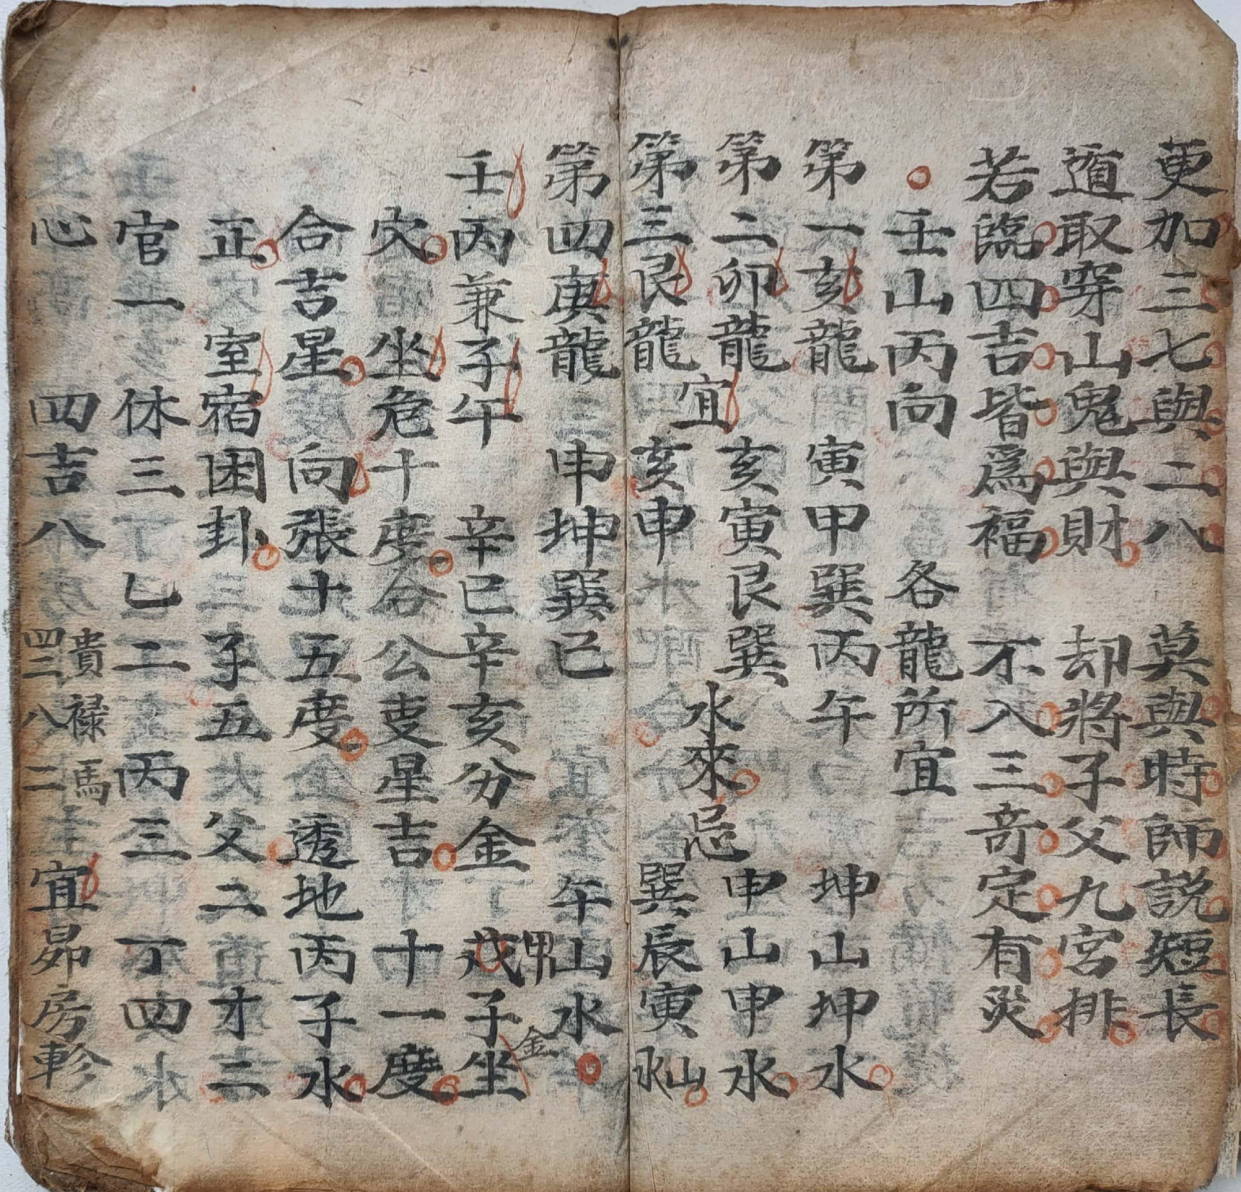 更加三七與二八 莫與時師説短長
遁取穿山鬼與財 却將子父九宮排
若臨四吉皆為福 不入三竒定有災
壬山丙向 各龍所宜
第一亥龍 寅甲巽丙午 坤山坤水
第二卯龍 亥寅艮巽 申山申水
宜 水來 忌
第三艮龍 亥申 巽辰寅山水
第四庚龍 申坤巽巳 午山水
壬丙兼子午 辛巳辛亥分金 戊甲子坐金
穴 坐危十度合公吏星吉 十一度
合吉星 向張十五度 透地丙子水
正 室宿困卦 子五父二才三
官一休三丁乜二丙三丁四水
心 四吉八四三八二貴祿馬 宜昴房軫